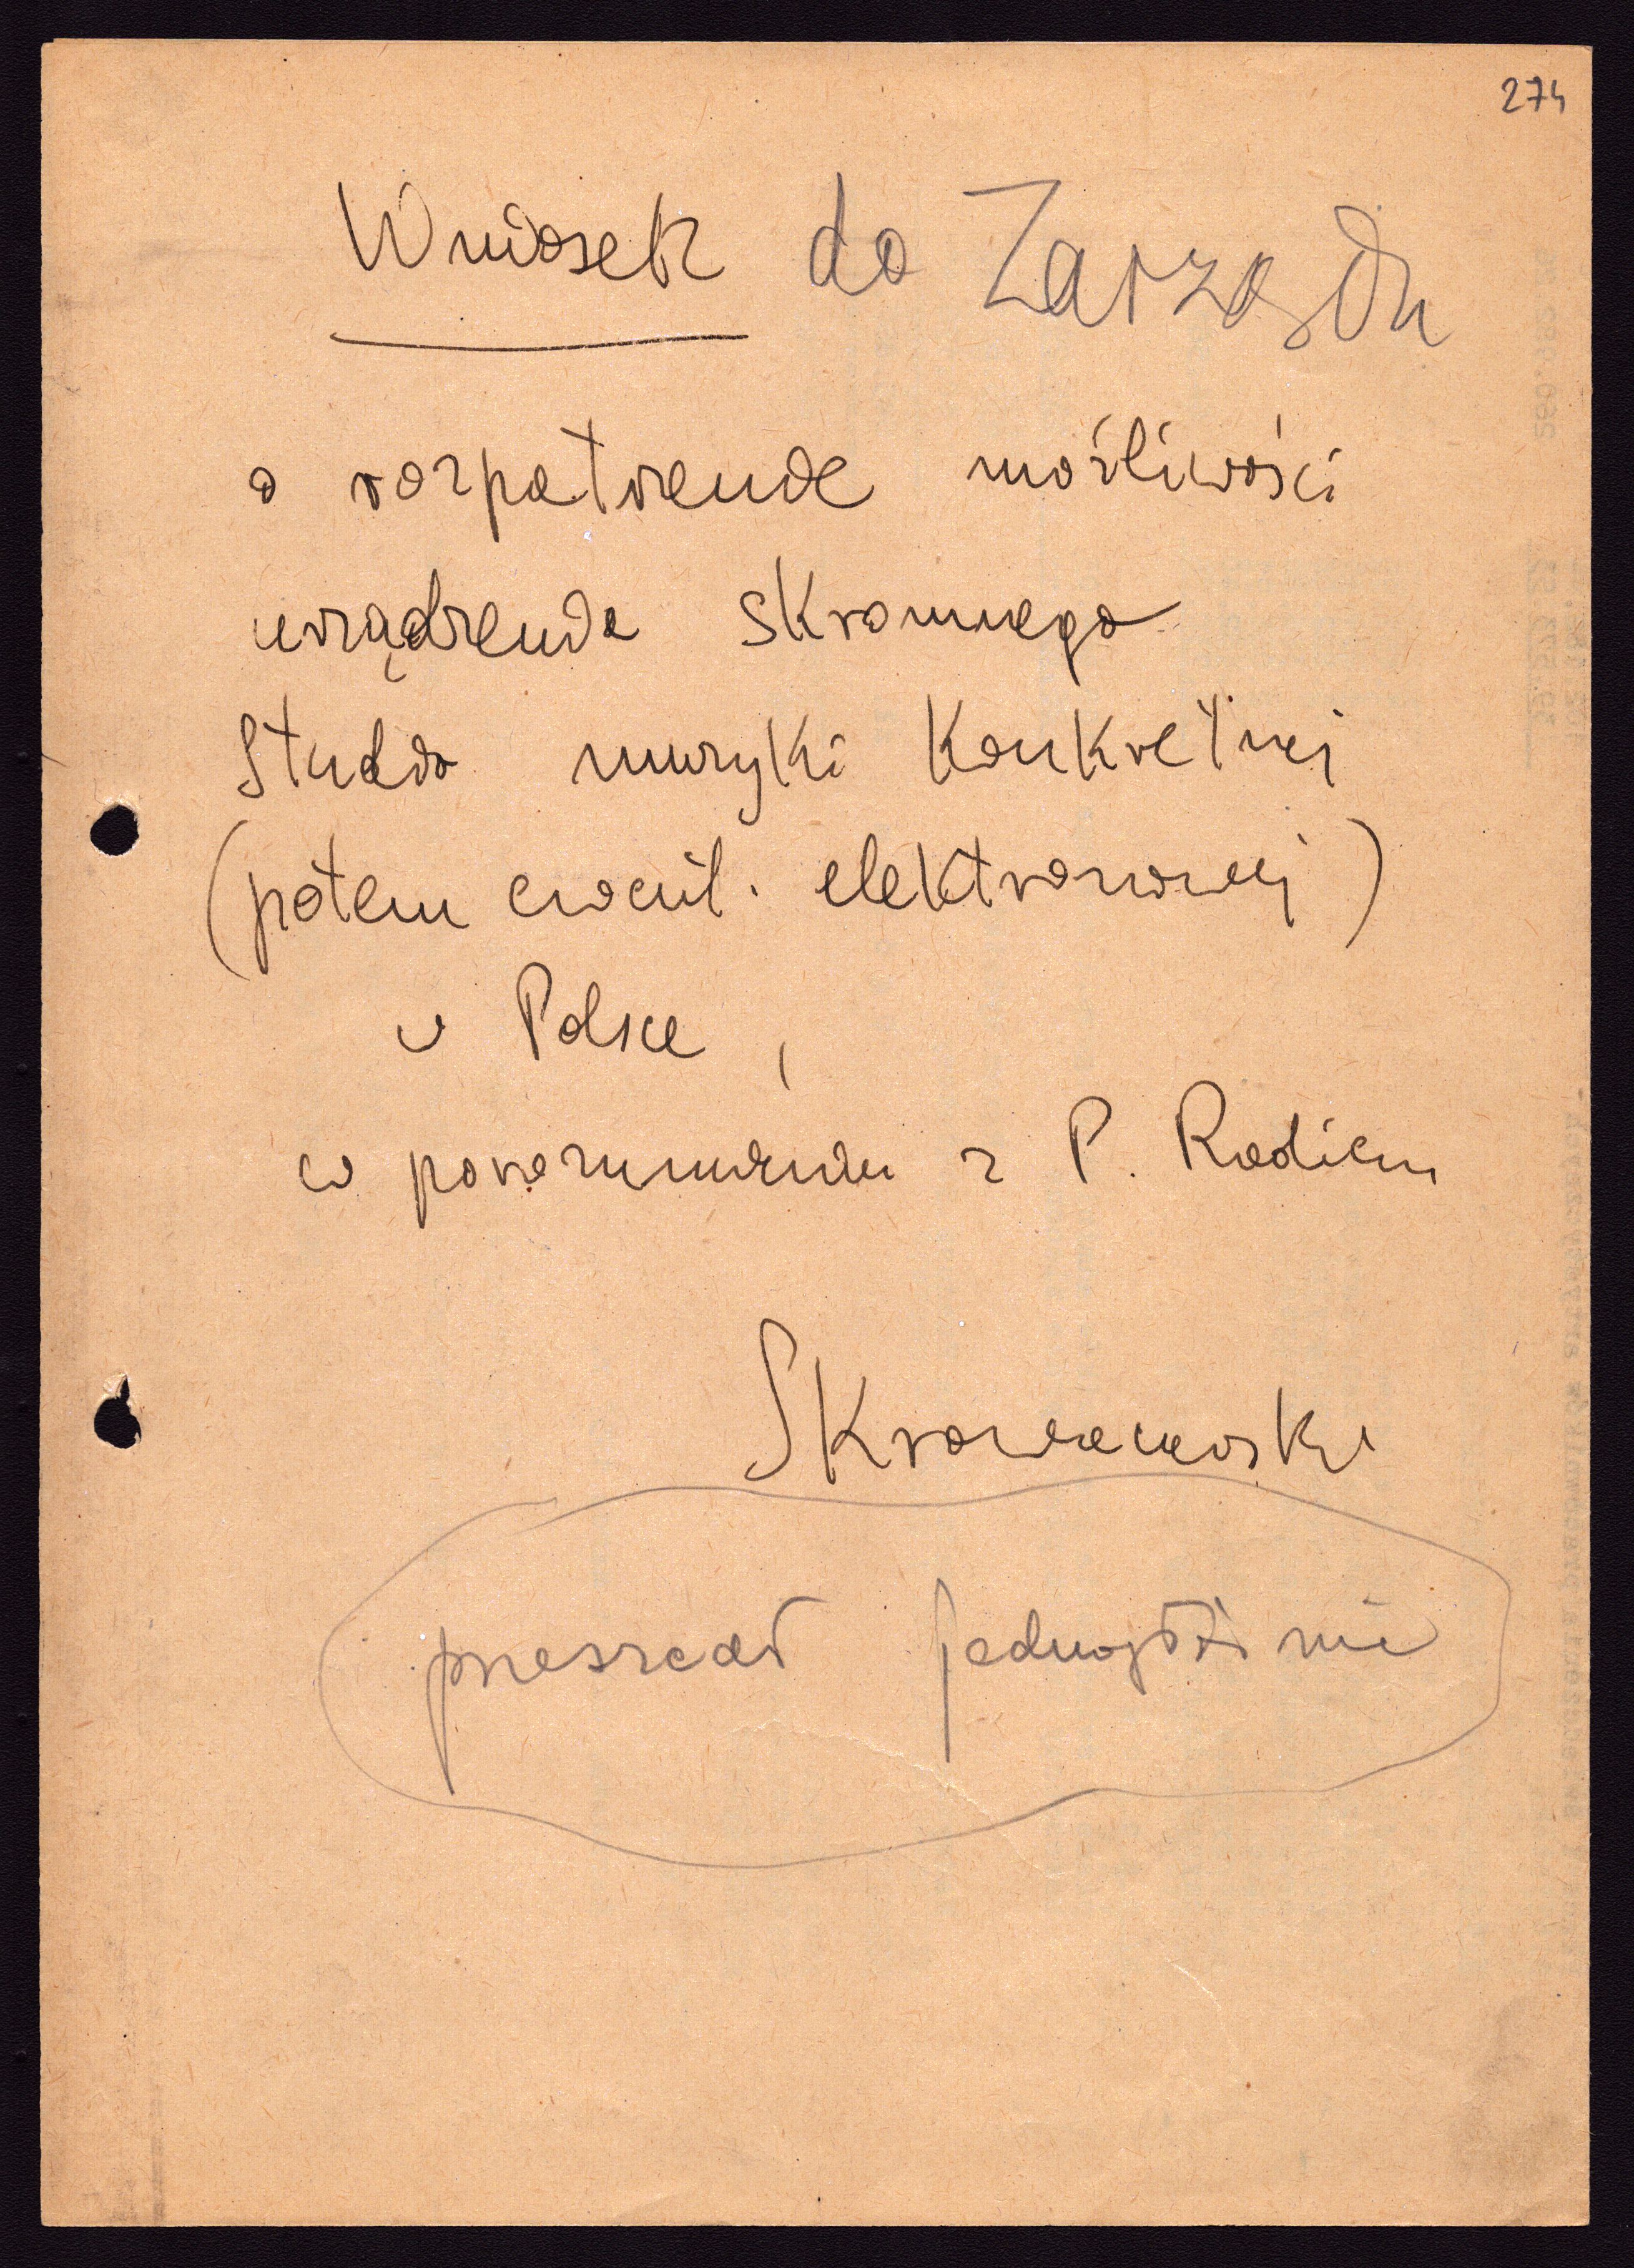 274
Wniosek do Zarządu
o rozpatrzenie możliwości
urządzenia skromnego
Studia muzyki Konkretnej
(potem ewent. elektronowej)
w Polsce,
w porozumieniu z P. Radiem
Skrowaczewski
przeszedł jednogłośnie